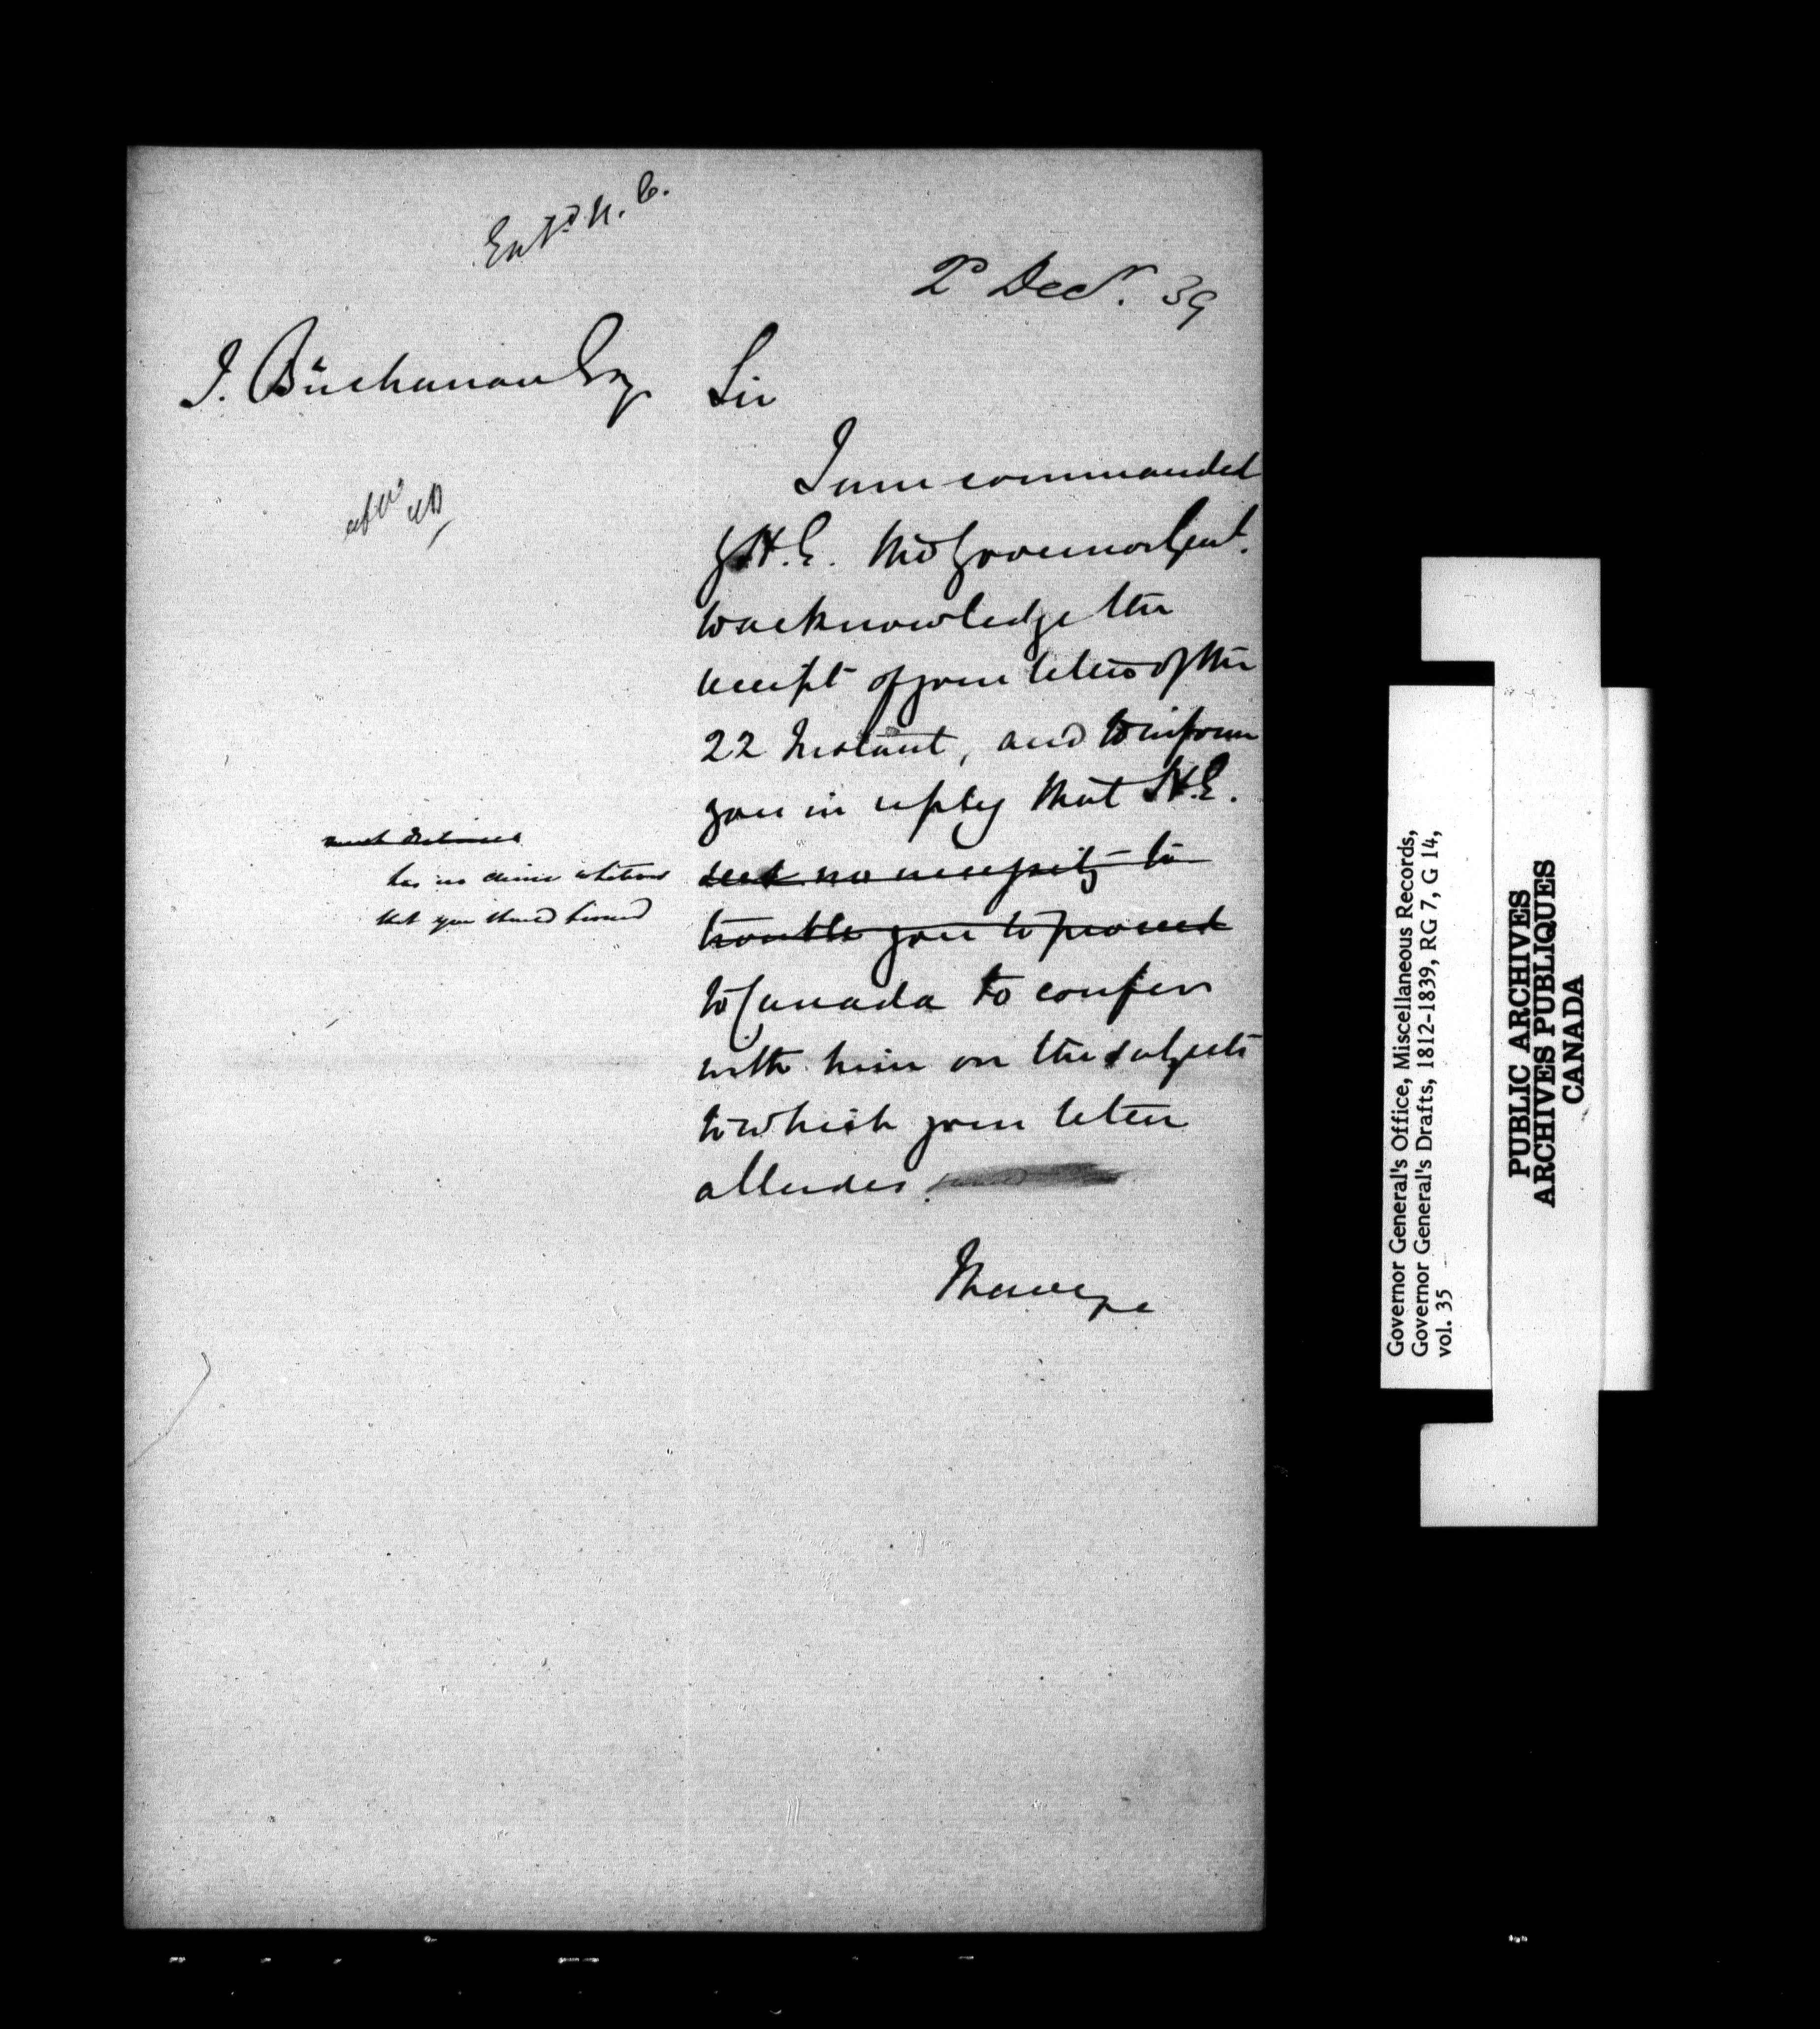 Ent^d N. C.
2^d Dec^r. 39
J. Buchanan Esq
Sir
I am commanded
by H.E. The Governor Genl.
to acknowledge the
receipt of your letter of the
22 Instant, and to inform
you in reply that H.E.
sees no necessity to
trouble you to proceed
has no desire whatever
that you should proceed
to Canada to confer
with him on the subjects
to which your letter
alludes.
I have &c
Governor General's Office, Miscellaneous Records,
Governor General's Drafts, 1812-1839, RG 7, G 14,
vol. 35
PUBLIC ARCHIVES
ARCHIVES PUBLIQUES
CANADA